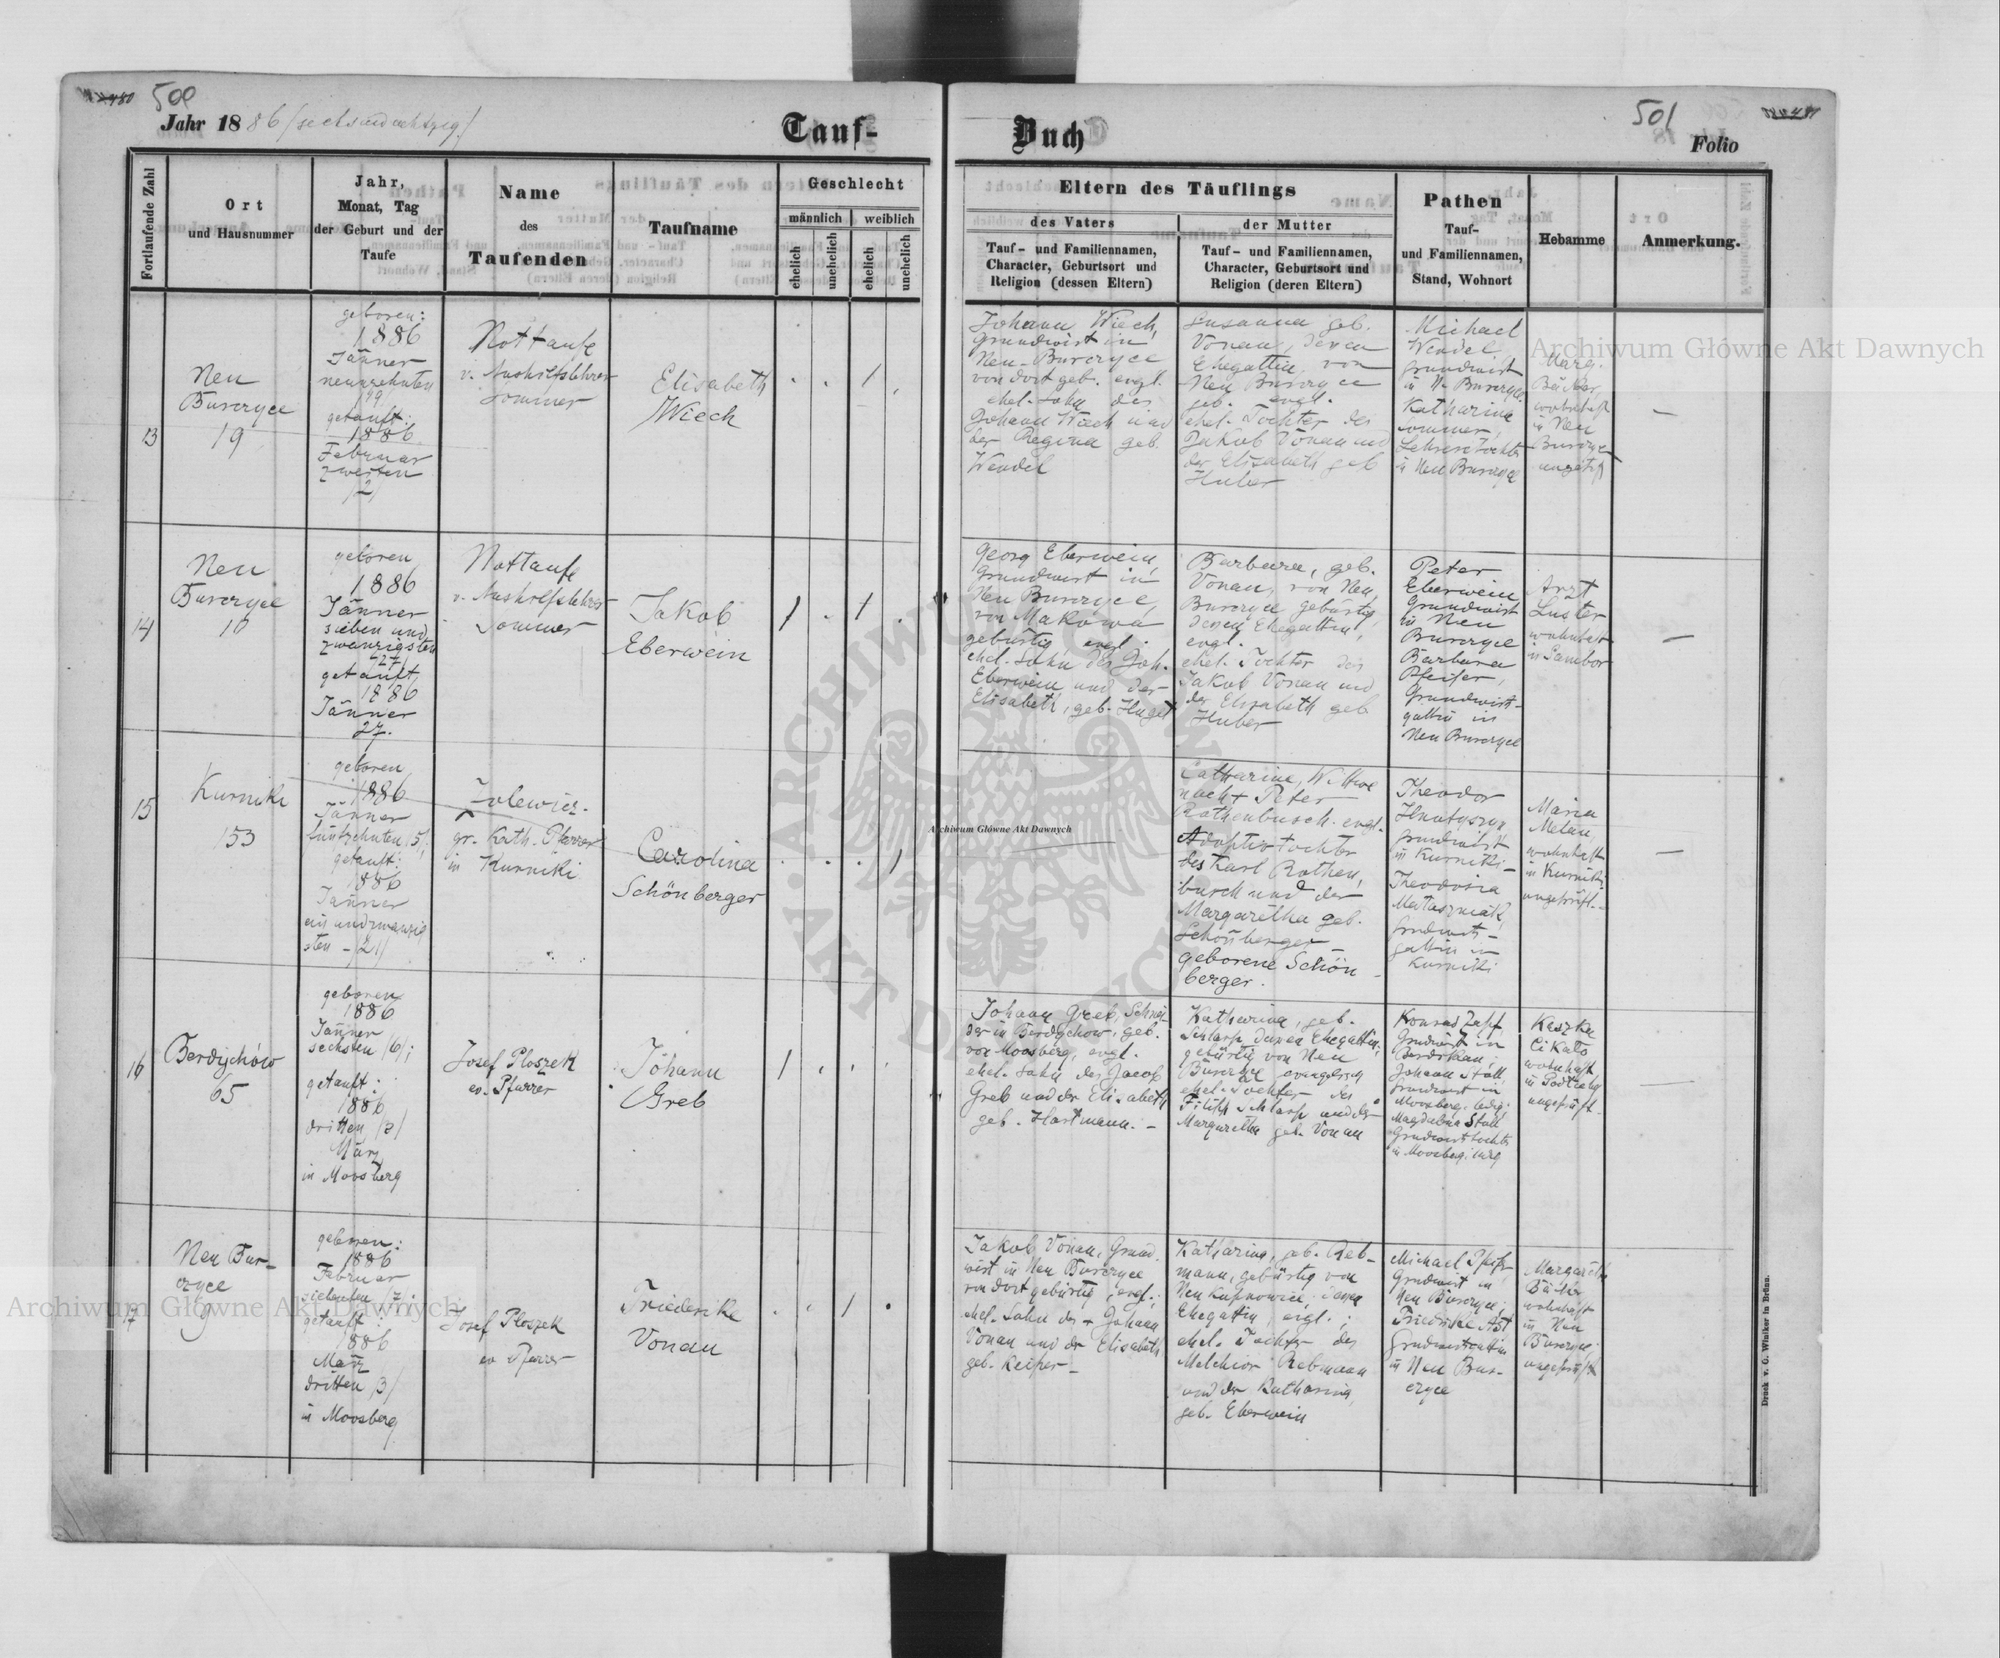 500
Jahr 1886 (sechsundachtzig)
Tauf-
Fortlaufende Zahl
Ort
und Hausnummer
Jahr,
Monat, Tag
der Geburt und der
Taufe
Name
des
Taufenden
Taufname
Geschlecht
männlich
weiblich
ehelich
unehelich
ehelich
unehelich
13
Neu
Burczyce
19
geboren:
1886
Jänner
neunzehnten
19
getauft:
1886
Februar
zweiten
/2/
Nottaufe
v. Aushilfslehrer
Sommer
Elisabeth
Wiech
14
Neu
Burczyce
10
geboren
1886
Jänner
sieben und
zwanzigsten
/27/
getauft,
1886
Jänner
27.
Nottaufe
v. Aushilfslehrer
Sommer
Jakob
Eberwein
15
Kurniki
153
geboren
1886
Jänner
fünfzehnten 15/,
getauft:
1886
Jänner
ein und zwanzig
sten - /21/
gr. Kath. Pfarrer
in Kurniki
Carolina
Schönberger
16
Berdychów
65
geboren
1886
Jänner
sechsten /6/;
getauft:
1886
dritten /3/
März
in Moosberg
Josef Ploszek
ev. Pfarrer
Johann
Greb
17
Neu Bur-
czyce
9
geboren:
1886
Februar
siebenten /7/;
getauft:
1886
März
dritten /3/
in Moosberg
Josef Ploszek
ev Pfarrer
Friederike
Vonau
501
Buch
Folio
Eltern des Täuflings
des Vaters
Tauf- und Familiennamen,
Character, Geburtsort und
Religion (dessen Eltern)
der Mutter
Tauf- und Familiennamen,
Character, Geburtsort und
Religion (deren Eltern)
Pathen
Tauf-
und Familiennamen,
Stand, Wohnort
Hebamme
Anmerkung.
Johann Wiech,
Grundwirt in
Neu-Burczyce
von dort geb. evgl.
ehel. Sohn des
Johann Wiech und
der Regina geb.
Wendel
Susanna geb.
Vonau, deren
Ehegattin, von
Neu Burczyce
geb. evgl.
ehel. Tochter des
Jakob Vonau und
der Elisabeth geb
Huber
Michael
Wendel,
Grundwirt
in N. Burczyce
Katharina
Sommer,
Lehrerstochter
in Neu Burczyce
Marg.
Bäcker,
wohnhaft
in Neu
Burczyce
ungeprft
—
Georg Eberwein,
Grundwirt in
Neu Burczyce,
von Makowa
gebürtig, evgl.
ehel. Sohn des Joh.
Eberwein und der
Elisabeth, geb. Huget
Barbara, geb.
Vonau, von Neu,
Burczyce gebürtig,
dessen Ehegattin,
evgl.
ehel. Tochter des
Jakob Vonau und
der Elisabeth geb
Huber
Peter
Eberwein,
Grundwirt
in Neu
Burczyce
Barbara
Pfeifer,
Grundwirt-
gattin in
Neu Burczyce
Arzt
Luster
wohnhaft
in Sambor
—
Catharina, Wittwe
nach + Peter
Rothenbusch. evgl.
Adoptivtochter
des Karl Rothen,
busch und der
Margaretha geb.
Schönberger
geborene Schön-
berger.
Theodor
Hnatyszyn
Grundwirt
in Kurniki -
Theodosia
Matuszniak
Grundwirts-
gattin in
Kurniki
Maria
Melan
wohnhaft
in Kurniki
ungeprüft. -
—
Johann Greb, Schnei-
der in Berdychow, geb.
von Moosberg, evgl.
ehel. Sohn des Jacob
Greb und der Elisabeth
geb. Hartmann. -
Katharina, geb.
Schlarp dessen Ehegattin,
gebürtig von Neu
Burczyce evangelisch
ehel. Tochter des
Filipp Schlarp und der
Margaretha geb. Vonau
Konrad Zapf
Grundwirt in
Johann Stall,
Grundwirt in
Moosberg, ledig;
Magdalena Stall
Grundwirtstochter
in Moosberg, ledig
Kaszka
Cikato
wohnhaft
ungeprüft
—
Jakob Vonau, Grund-
wirt in Neu Burczyce
von dort gebürtig, evgl.;
ehel. Sohn des + Johann
Vonau und der Elisabeth
geb. Keiper -
Katharina, geb. Reb-
mann, gebürtig von
Neu Kupnowice, dessen
Ehegattin, evgl.;
ehel. Tochter des
Melchior Rebmann
und der Katharina,
geb. Eberwein
Michael Pfeifer
Grundwirt in
Neu Burczyce;
Friederike Ast
Grundwirtsgattin
in Neu Bur-
czyce
Margareth
Bäcker
wohnhaft
in Neu
Burczyce;
ungeprüft
—
Druck v. G. Winiker in Brünn.
Archiwum Główne Akt Dawnych
Archiwum Główne Akt Dawnych
Archiwum Główne Akt Dawnych